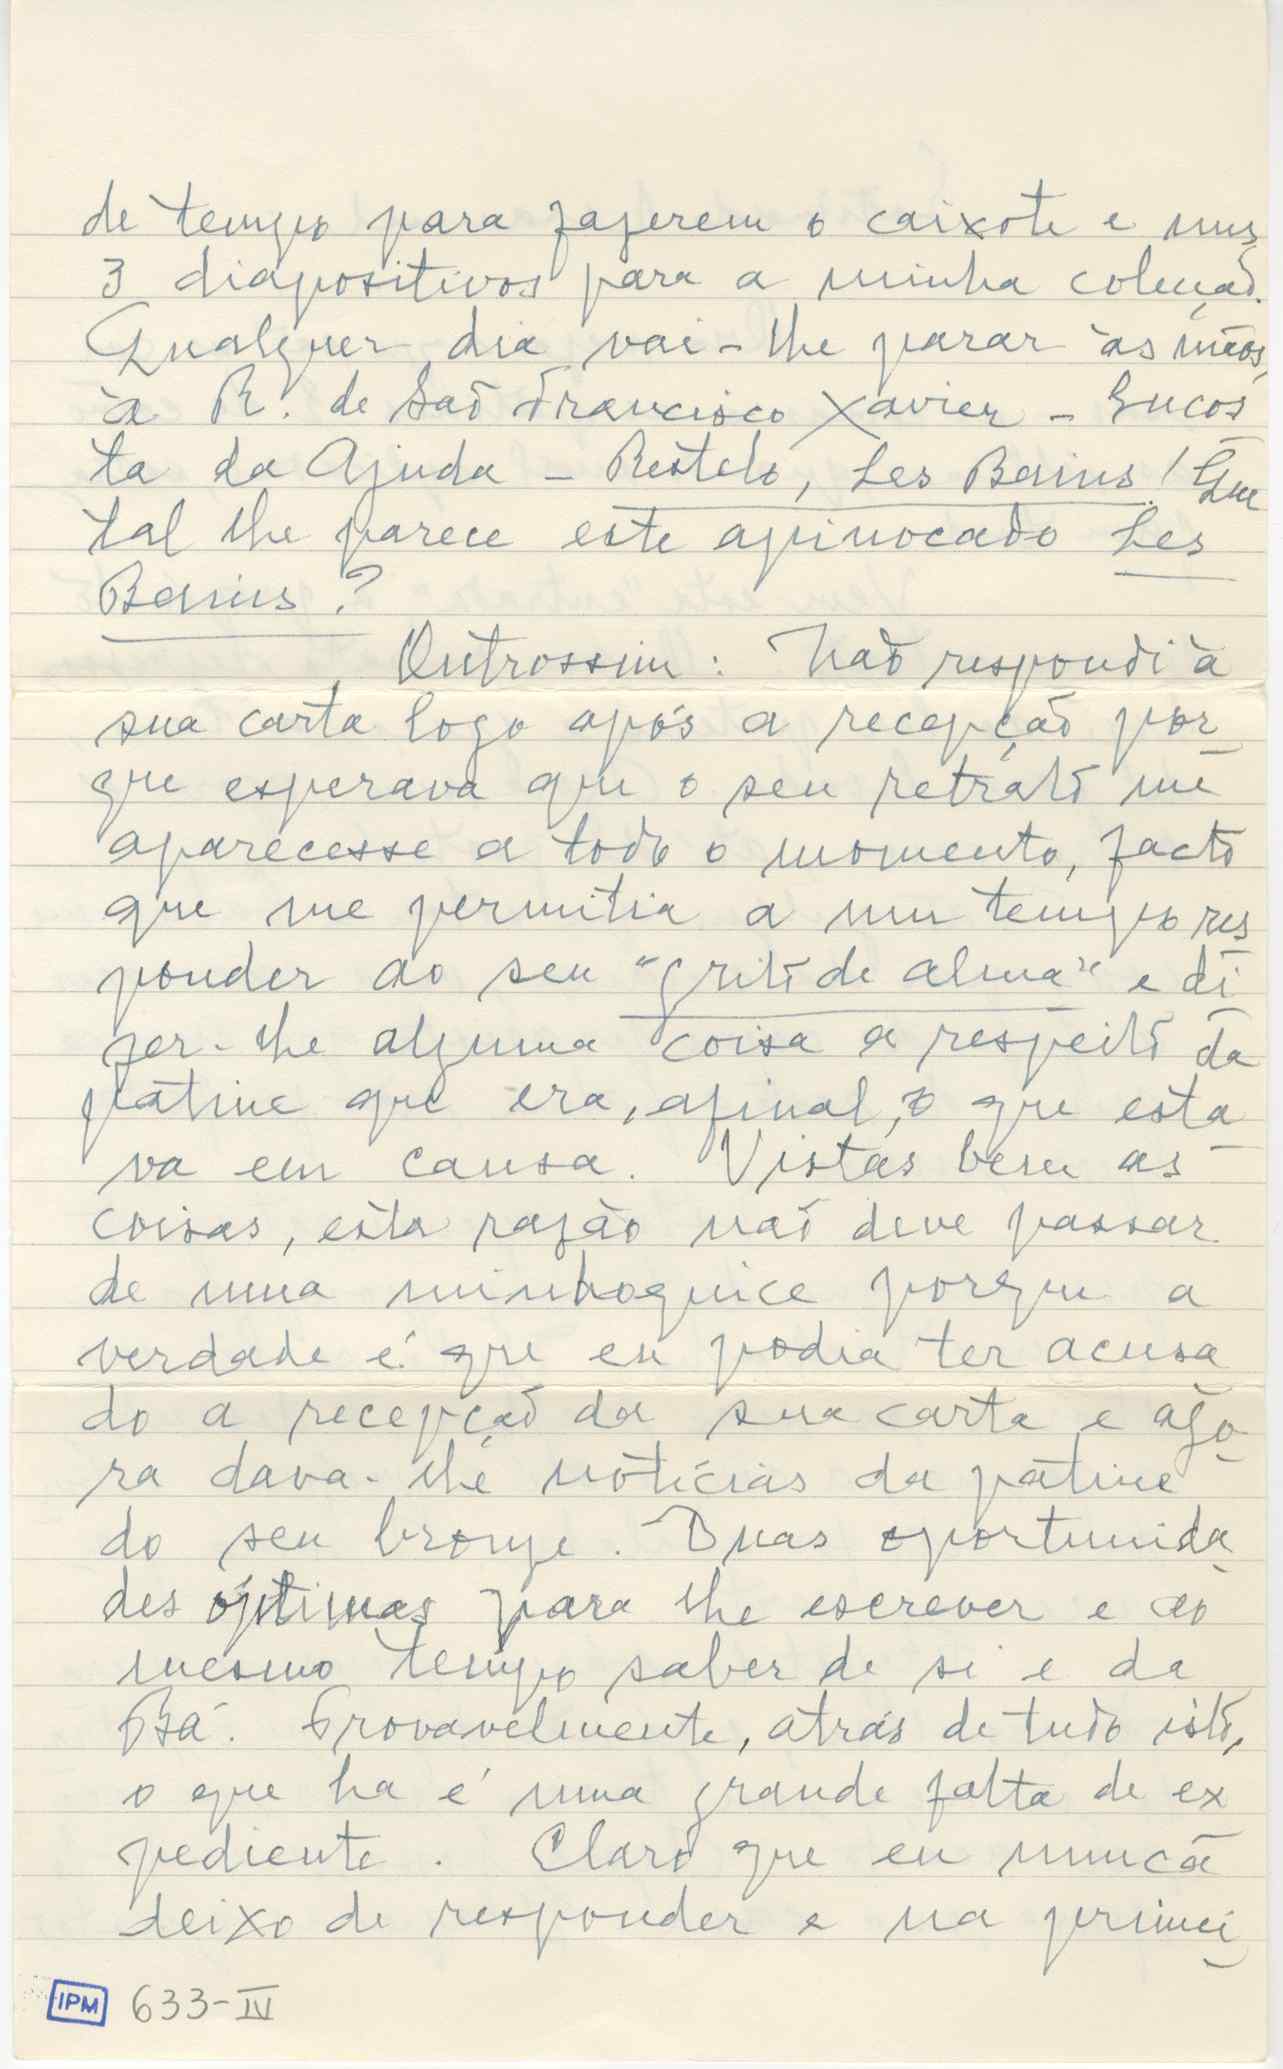 de tempo para fazerem o caixote e uns
3 diapositivos para a minha coleção.
Qualquer dia vai-lhe parar às mãos,
à R. de São Francisco Xavier - Encos
ta da Ajuda - Restelo, Les Bains! Que
tal lhe parece este apinocado Les
Bains?
Outrossim: Não respondi à
sua carta logo após a recepção por
que esperava que o seu retrato me
aparecesse a todo o momento, facto
que me permitia a um tempo res
ponder ao seu "grito de alma" e di
zer-lhe alguma coisa a respeito da
pátine que era, afinal, o que esta
va em causa. Vistas bem as
coisas, esta razão não deve passar
de uma minhoquice porque a
verdade é que eu podia ter acusa
do a recepção da sua carta e ago
ra dava-lhe notícias da pátine
do seu bronze. Duas oportunida
des óptimas para lhe escrever e ao
mesmo tempo saber de si e da
Bá. Provavelmente, atrás de tudo isto,
o que ha é uma grande falta de ex
pediente. Claro que eu nunca
deixo de responder e na primei
IPM 633-IV